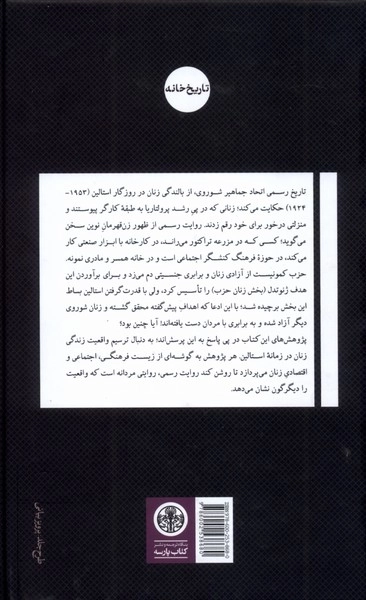 تاریخ‌خانه
تاریخ رسمی اتحاد جماهیر شوروی، از بالندگی زنان در روزگار استالین (۱۹۵۳-
۱۹۲۴) حکایت می‌کند؛ زنانی که در پی رشد پرولتاریا به طبقهٔ کارگر پیوستند و
منزلتی درخور برای خود رقم زدند. روایت رسمی از ظهور زن‌قهرمان نوین سخن
می‌گوید؛ کسی که در مزرعه تراکتور می‌راند، در کارخانه با ابزار صنعتی کار
می‌کند، در حوزهٔ فرهنگ کنشگر اجتماعی است و در خانه همسر و مادری نمونه.
حزب کمونیست از آزادی زنان و برابری جنسیتی دم می‌زد و برای برآوردن این
هدف ژنوتدل (بخش زنان حزب) را تأسیس کرد، ولی با قدرت‌گرفتن استالین بساط
این بخش برچیده شد؛ با این ادعا که اهداف پیش‌گفته محقق گشته و زنان شوروی
دیگر آزاد شده و به برابری با مردان دست یافته‌اند! آیا چنین بود؟
پژوهش‌های این کتاب در پی پاسخ به این پرسش‌اند؛ به دنبال ترسیم واقعیت زندگی
زنان در زمانهٔ استالین. هر پژوهش به گوشه‌ای از زیست فرهنگی، اجتماعی و
اقتصادی زنان می‌پردازد تا روشن کند روایت رسمی، روایتی مردانه است که واقعیت
را دیگرگون نشان می‌دهد.
بنگاه ترجمه و نشر
کتاب پارسه